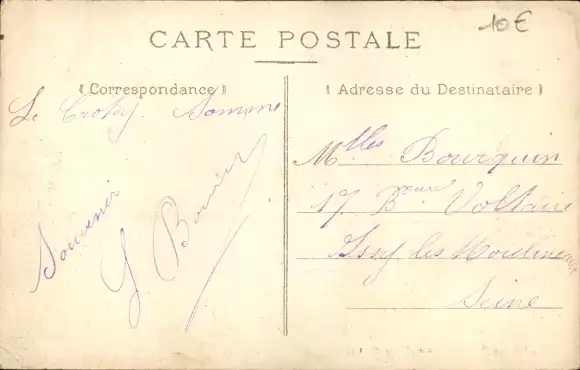 10€
CARTE POSTALE
(Correspondance)
Le Crotoy Somme
Souvenir
G.
(Adresse du Destinataire)
Mlles Bourquin
17 Bard Voltaire
Issy les Moulineaux
Seine